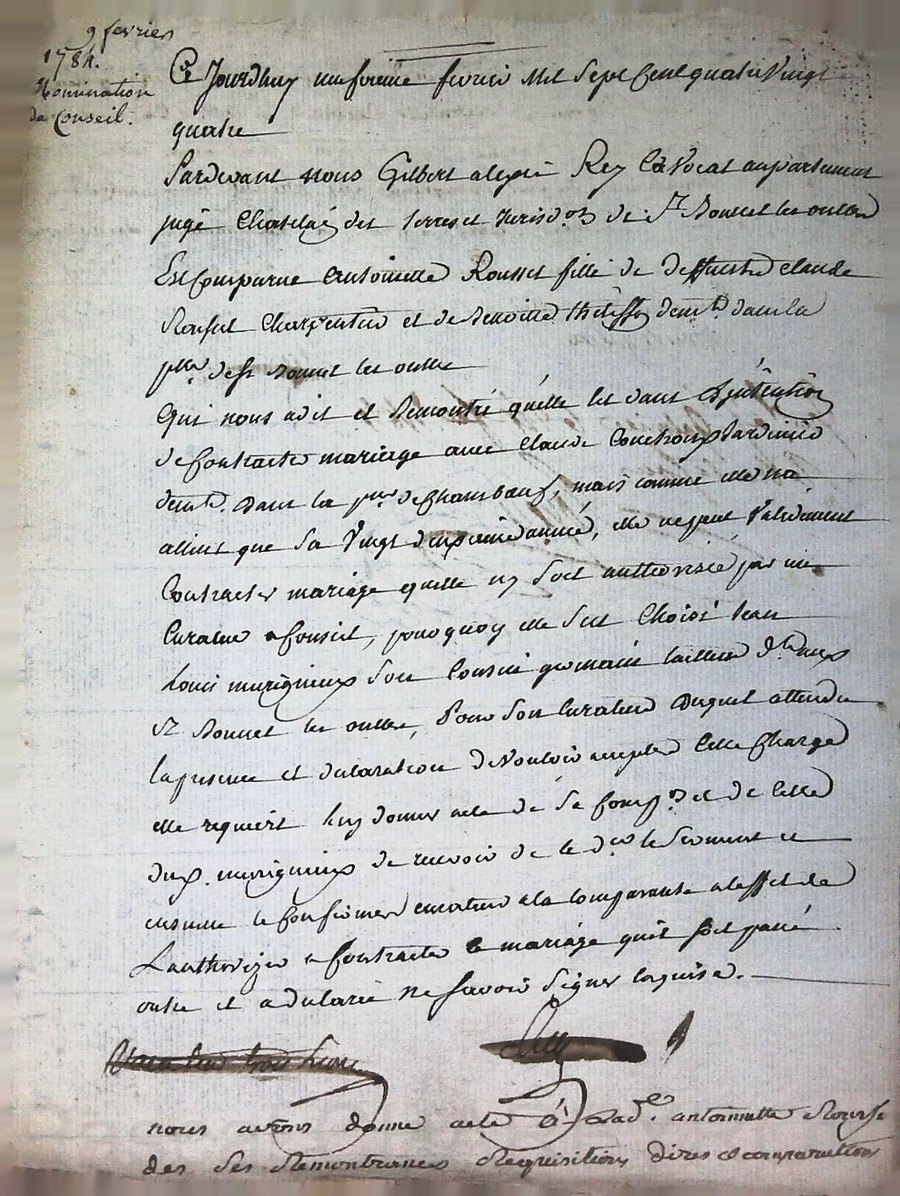 9 fevrier
1784.
Nomination
de Conseil.
Ce Jourdhuy neufvieme fevrier Mil Sept Cent quatre Vingt
quatre
Pardevant nous Gilbert Rey avocat au parlement
juge Chatelain des terres et Jurisdon de St Bonnet les oulles
Est Comparue Antoinette Rousset fille de deffunt Claude
Rousset Charpentier et de demt dans la
psse de st Bonnet les oulles
Qui nous a dit et Remontré qu'elle est dans L'jntention
de Contracter mariage avec Claude jardinier
demt dans la psse de Chambœuf, mais comme elle na
atteint que sa Vingt deuxieme année, elle ne peut Validement
Contracter mariage quelle ny soit authorisée par un
Curateur a Conseil, pourquoy elle sest Choisi Jean
Louis murigneux son Cousin germain tailleur dt aux
St Bonnet les oulles, Pour son Curateur Duquel attendu
la presence et declaration de Vouloir accepter Cette Charge
elle requiert luy donner acte de sa Compon et de Celle
dud. murigneux de recevoir de ce der le Serment et
ensuite le Confirmer curateur a la Comparante a leffet de
L'authorizer a Contracter le mariage quil soit passé
outre et a declaré ne Savoir Signer Enquise.
nous avons donné acte à Lade. antoinette Rousset
des Ses Remontrances Requisitions dires et comparutions